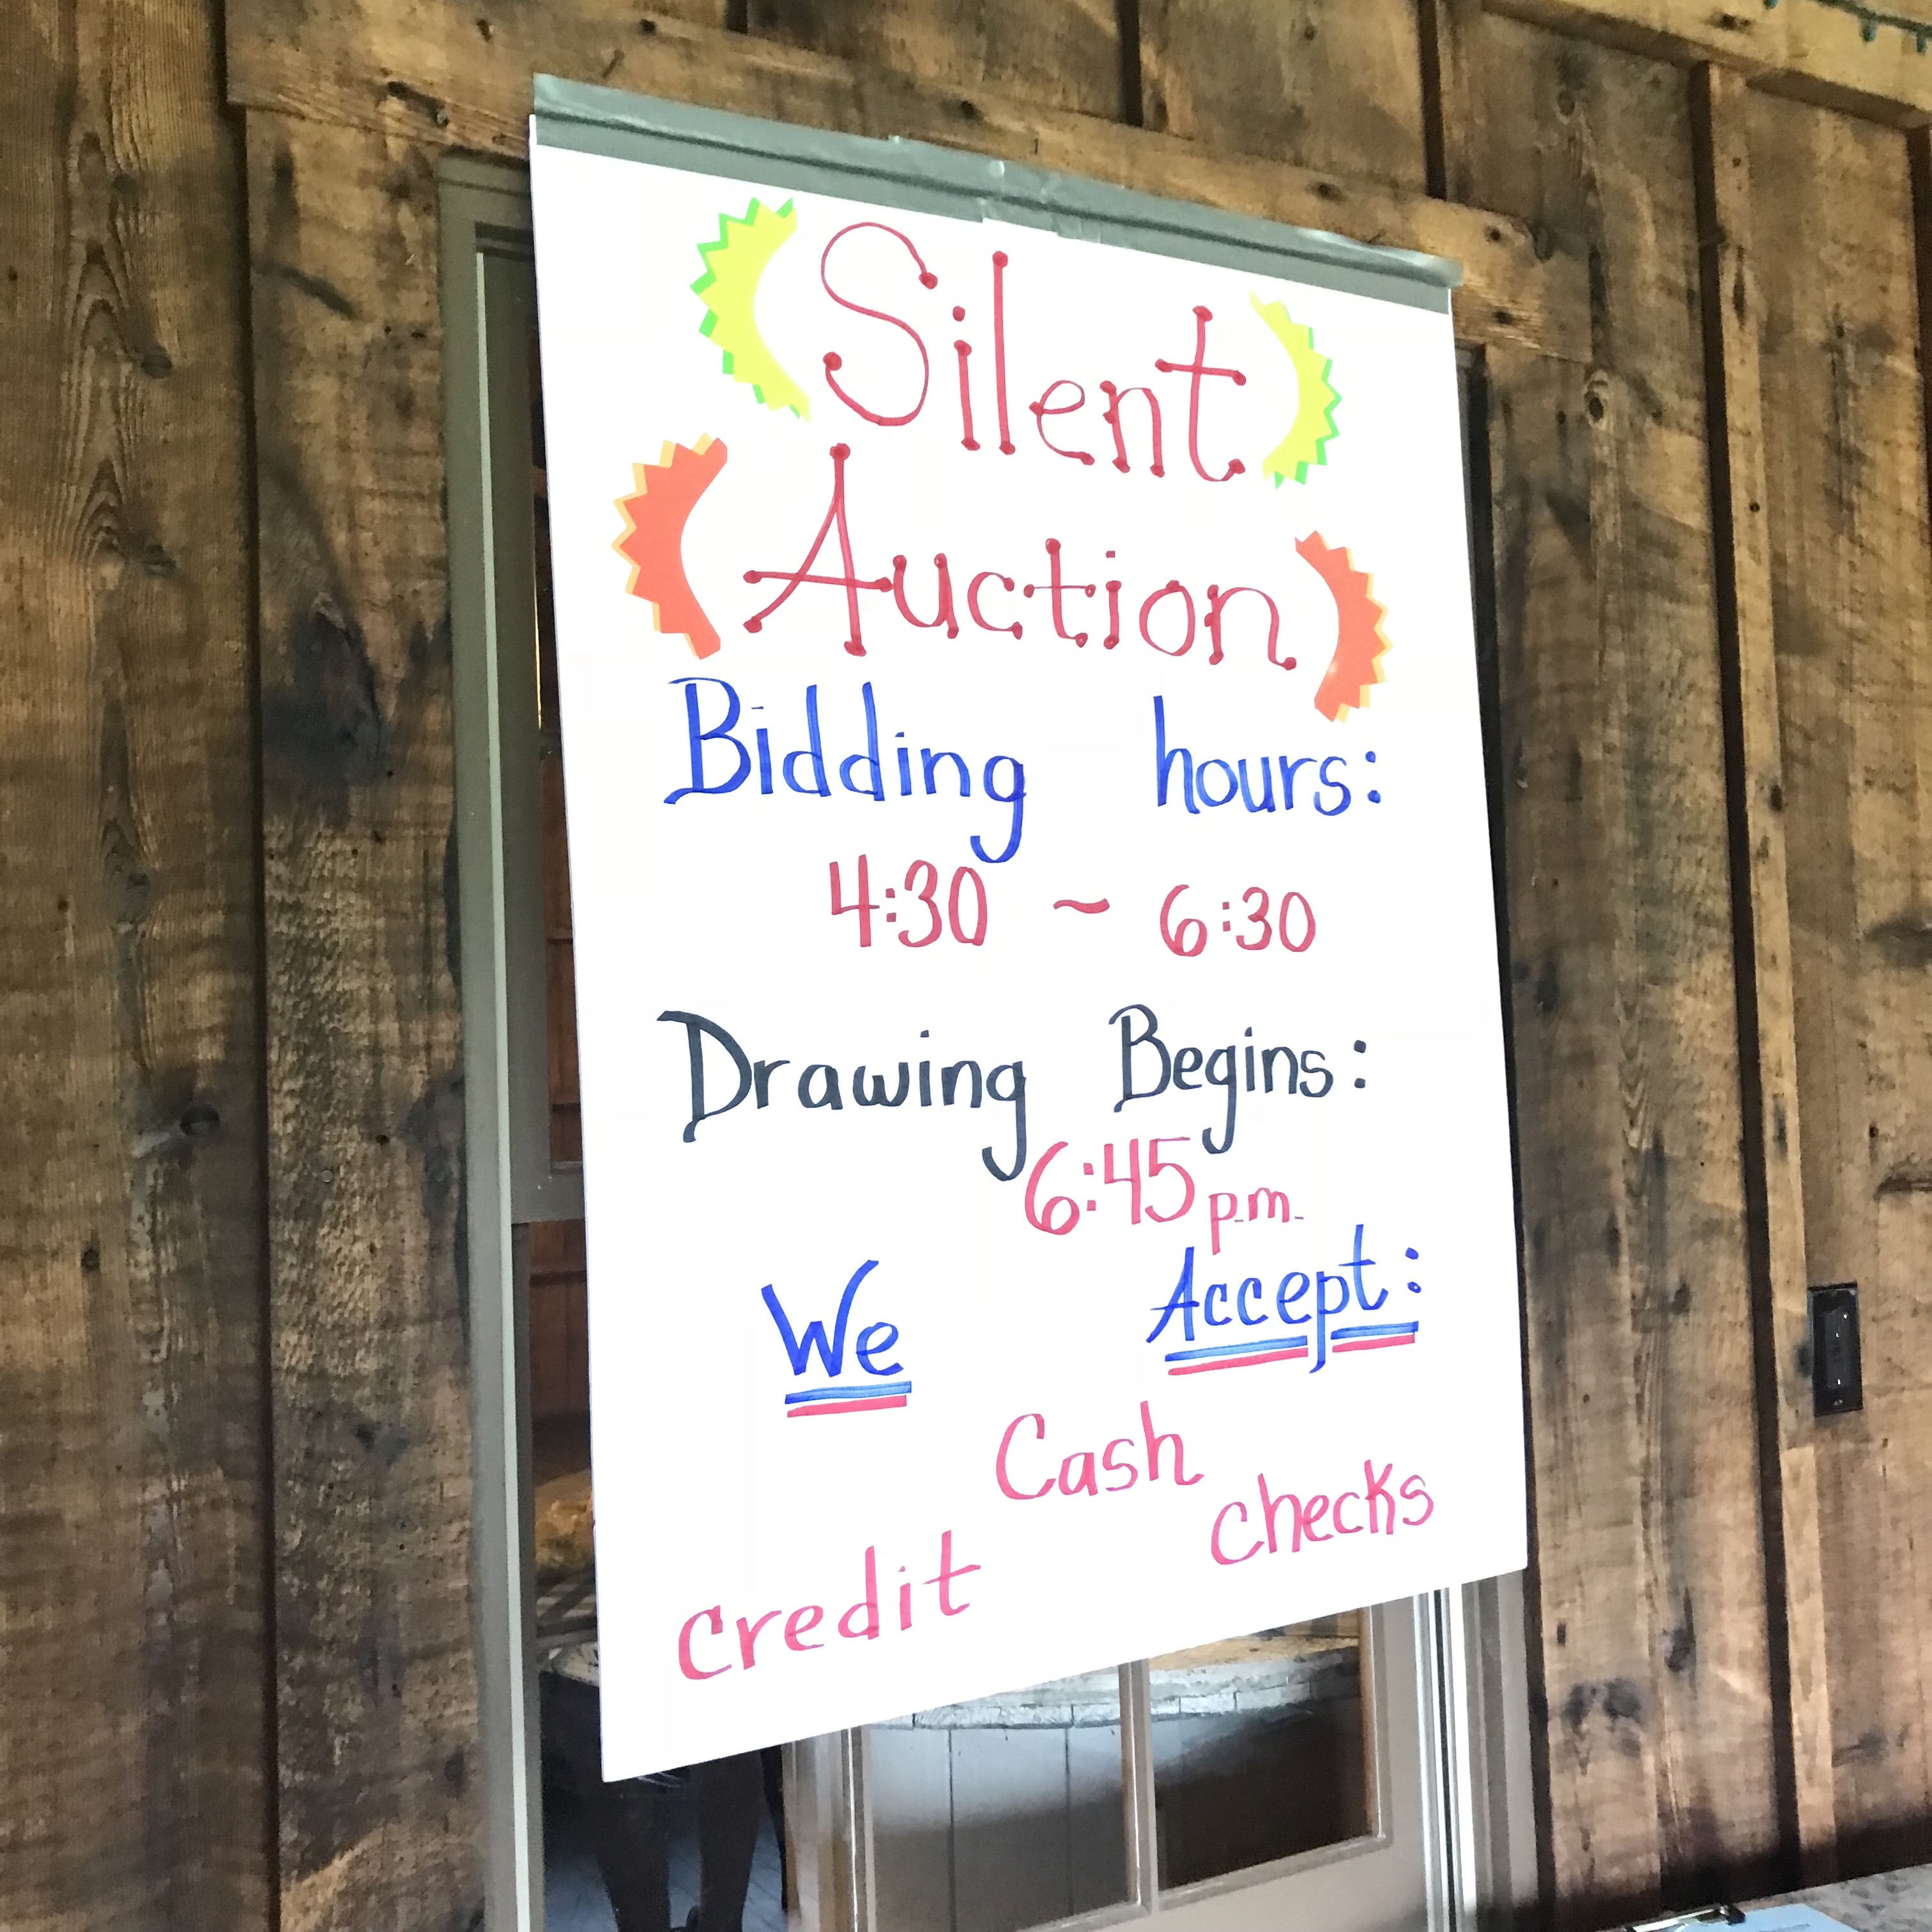 Silent
Auction
Bidding hours:
4:30 ~ 6:30
Drawing Begins:
6:45 p.m.
We Accept:
Cash
checks
credit